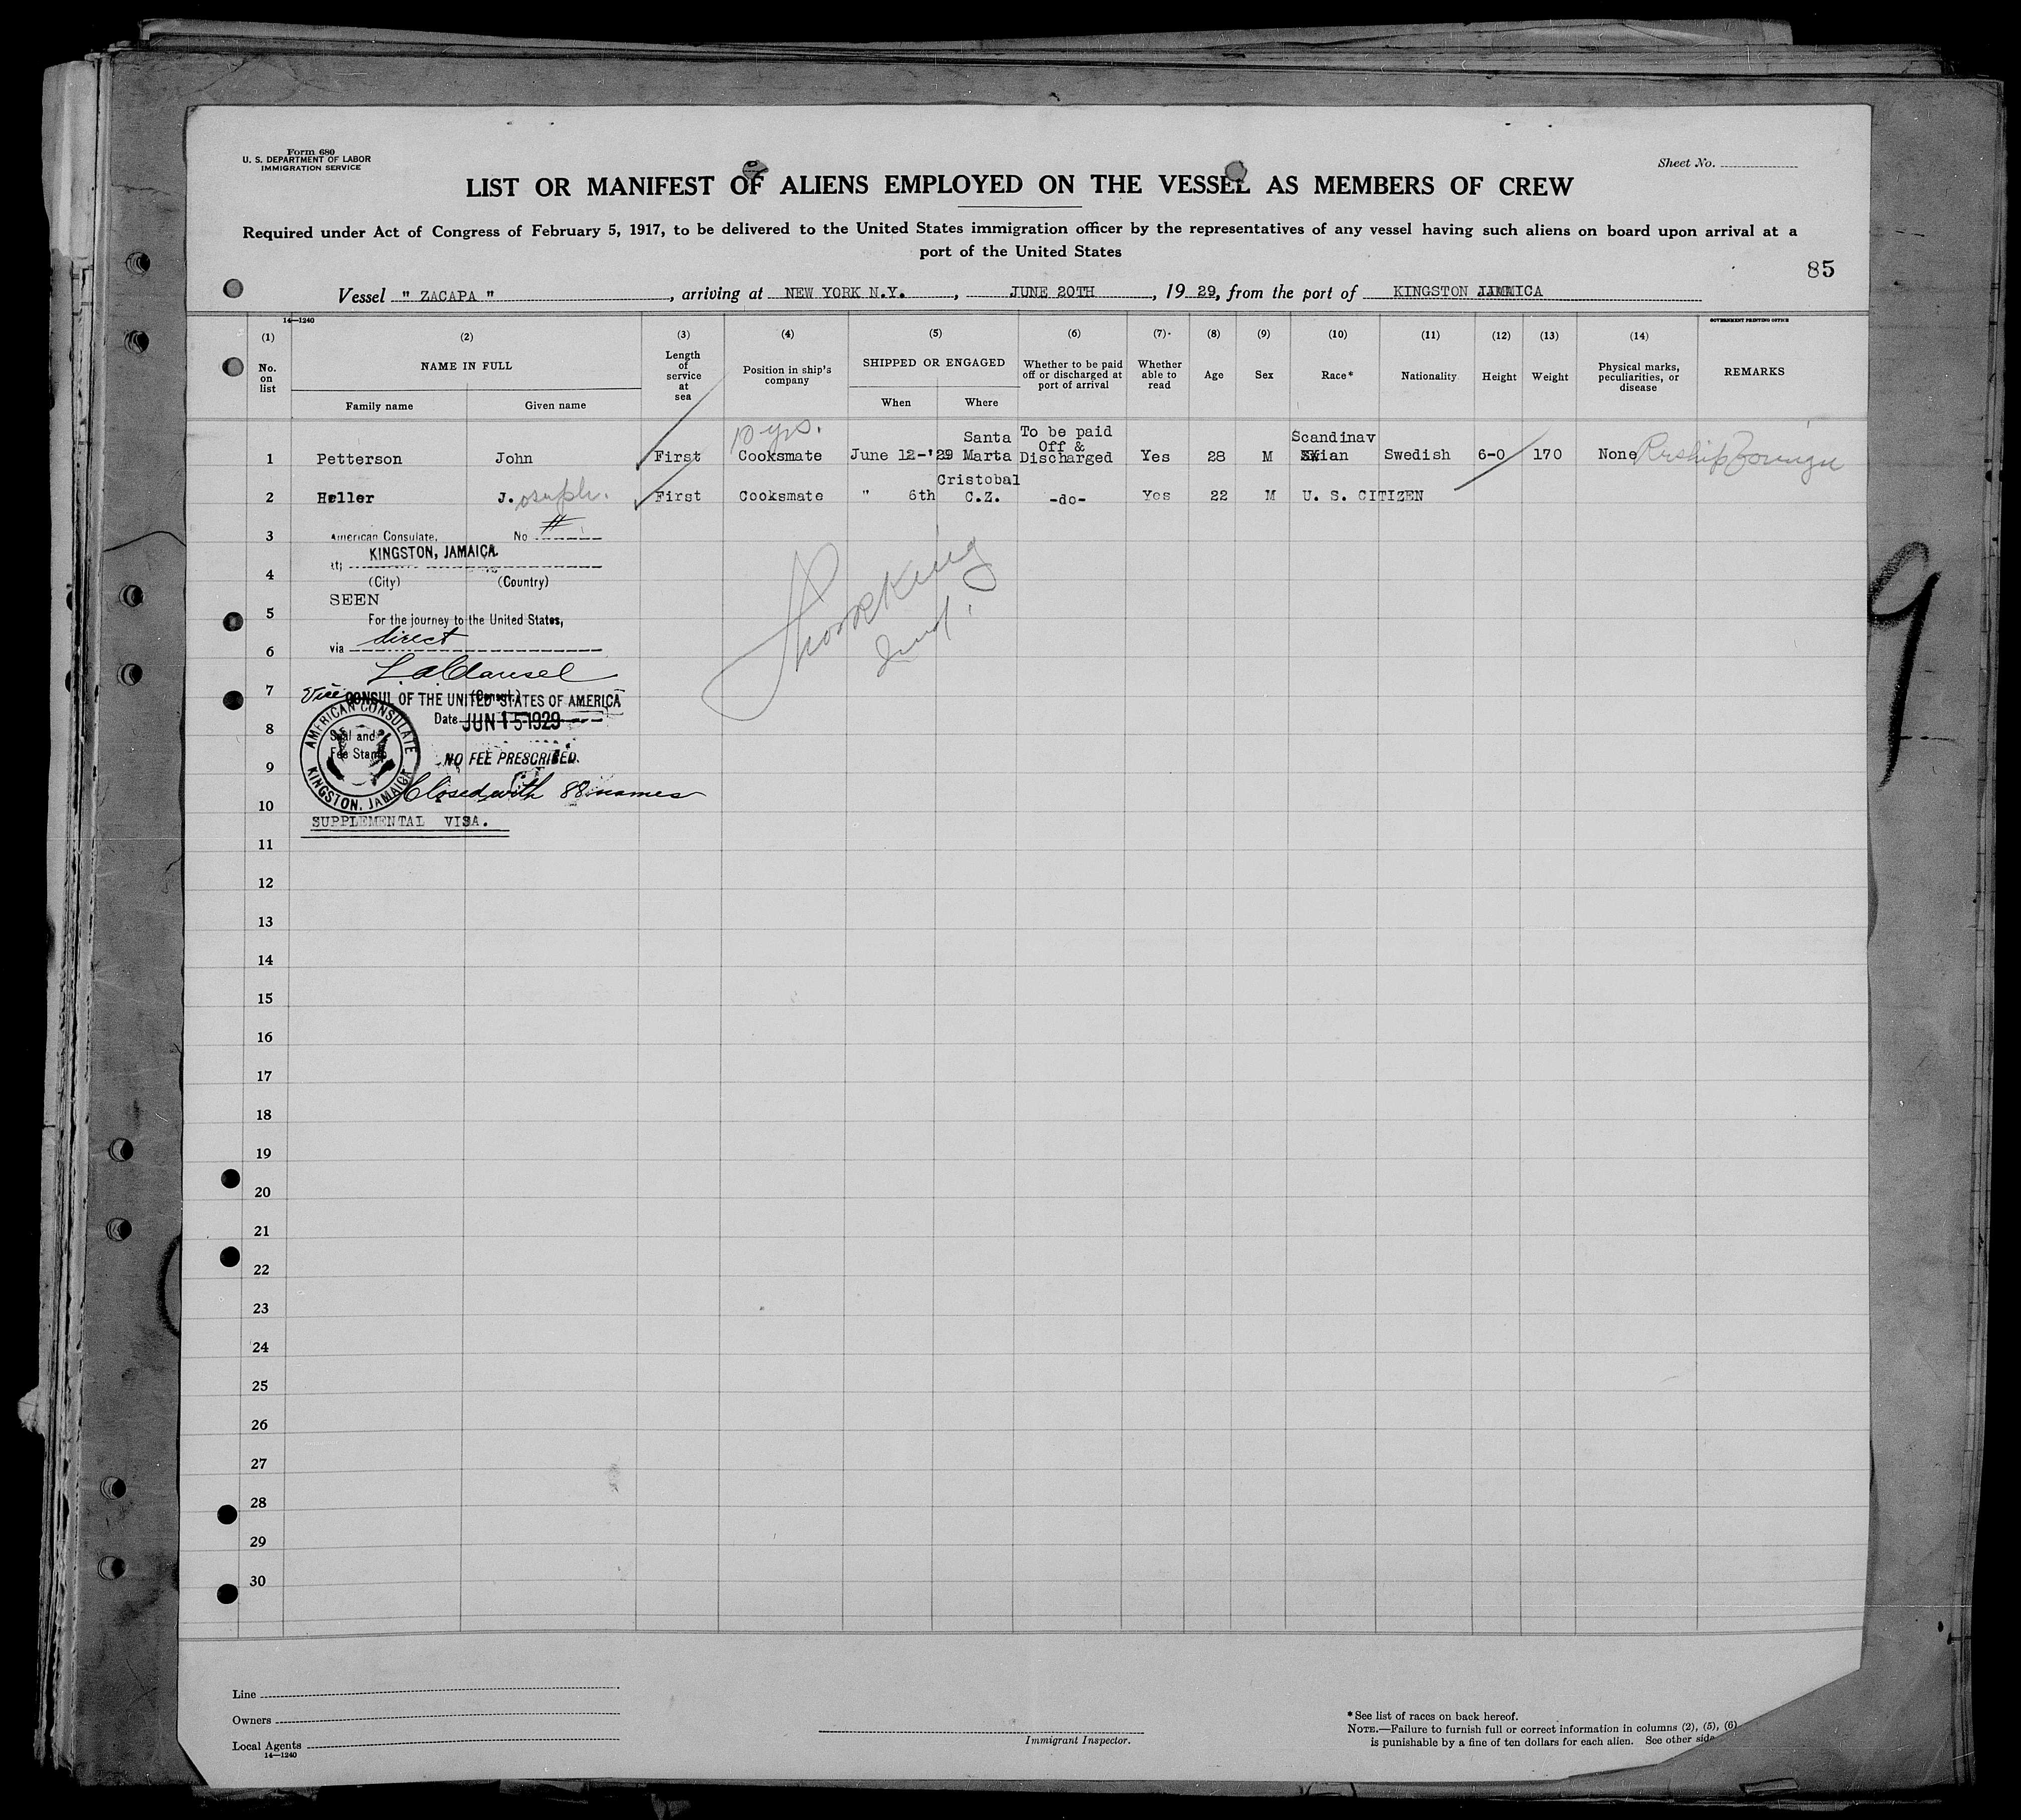 Form 680
U. S. DEPARTMENT OF LABOR
IMMIGRATION SERVICE
Sheet No.
LIST OR MANIFEST OF ALIENS EMPLOYED ON THE VESSEL AS MEMBERS OF CREW
Required under Act of Congress of February 5, 1917, to be delivered to the United States immigration officer by the representatives of any vessel having such aliens on board upon arrival at a
port of the United States
85
Vessel " ZACAPA ", arriving at NEW YORK N.Y., JUNE 20TH, 1929, from the port of KINGSTON JAMAICA
14—1240
GOVERNMENT PRINTING OFFICE
(1) (2) (3) (4) (5) (6) (7) (8) (9) (10) (11) (12) (13) (14)
No. on list
NAME IN FULL
Family name
Given name
Length of service at sea
Position in ship's company
SHIPPED OR ENGAGED
When
Where
Whether to be paid off or discharged at port of arrival
Whether able to read
Age
Sex
Race*
Nationality
Height
Weight
Physical marks, peculiarities, or disease
REMARKS
10 yrs.
1 Petterson John First Cooksmate June 12-'29 Santa Marta To be paid Off & Discharged Yes 28 M Scandinavian Swedish 6-0 170 None
2 Heller J.oseph. First Cooksmate " 6th Cristobal C.Z. -do- Yes 22 M U. S. CITIZEN
3
American Consulate, No
KINGSTON, JAMAICA.
at
4
(City) (Country)
SEEN
5
For the journey to the United States,
6
via direct
7
Vice CONSUL OF THE UNITED STATES OF AMERICA
(Consul.)
Date JUN 15 1929
8
AMERICAN CONSULATE
KINGSTON, JAMAICA
Seal and
Fee Stamp
NO FEE PRESCRIBED.
9
Closed with 88 names
10
SUPPLEMENTAL VISA.
11
12
13
14
15
16
17
18
19
20
21
22
23
24
25
26
27
28
29
30
9
Line
Owners
Local Agents
14—1240
Immigrant Inspector.
*See list of races on back hereof.
NOTE.—Failure to furnish full or correct information in columns (2), (5), (6)
is punishable by a fine of ten dollars for each alien. See other side